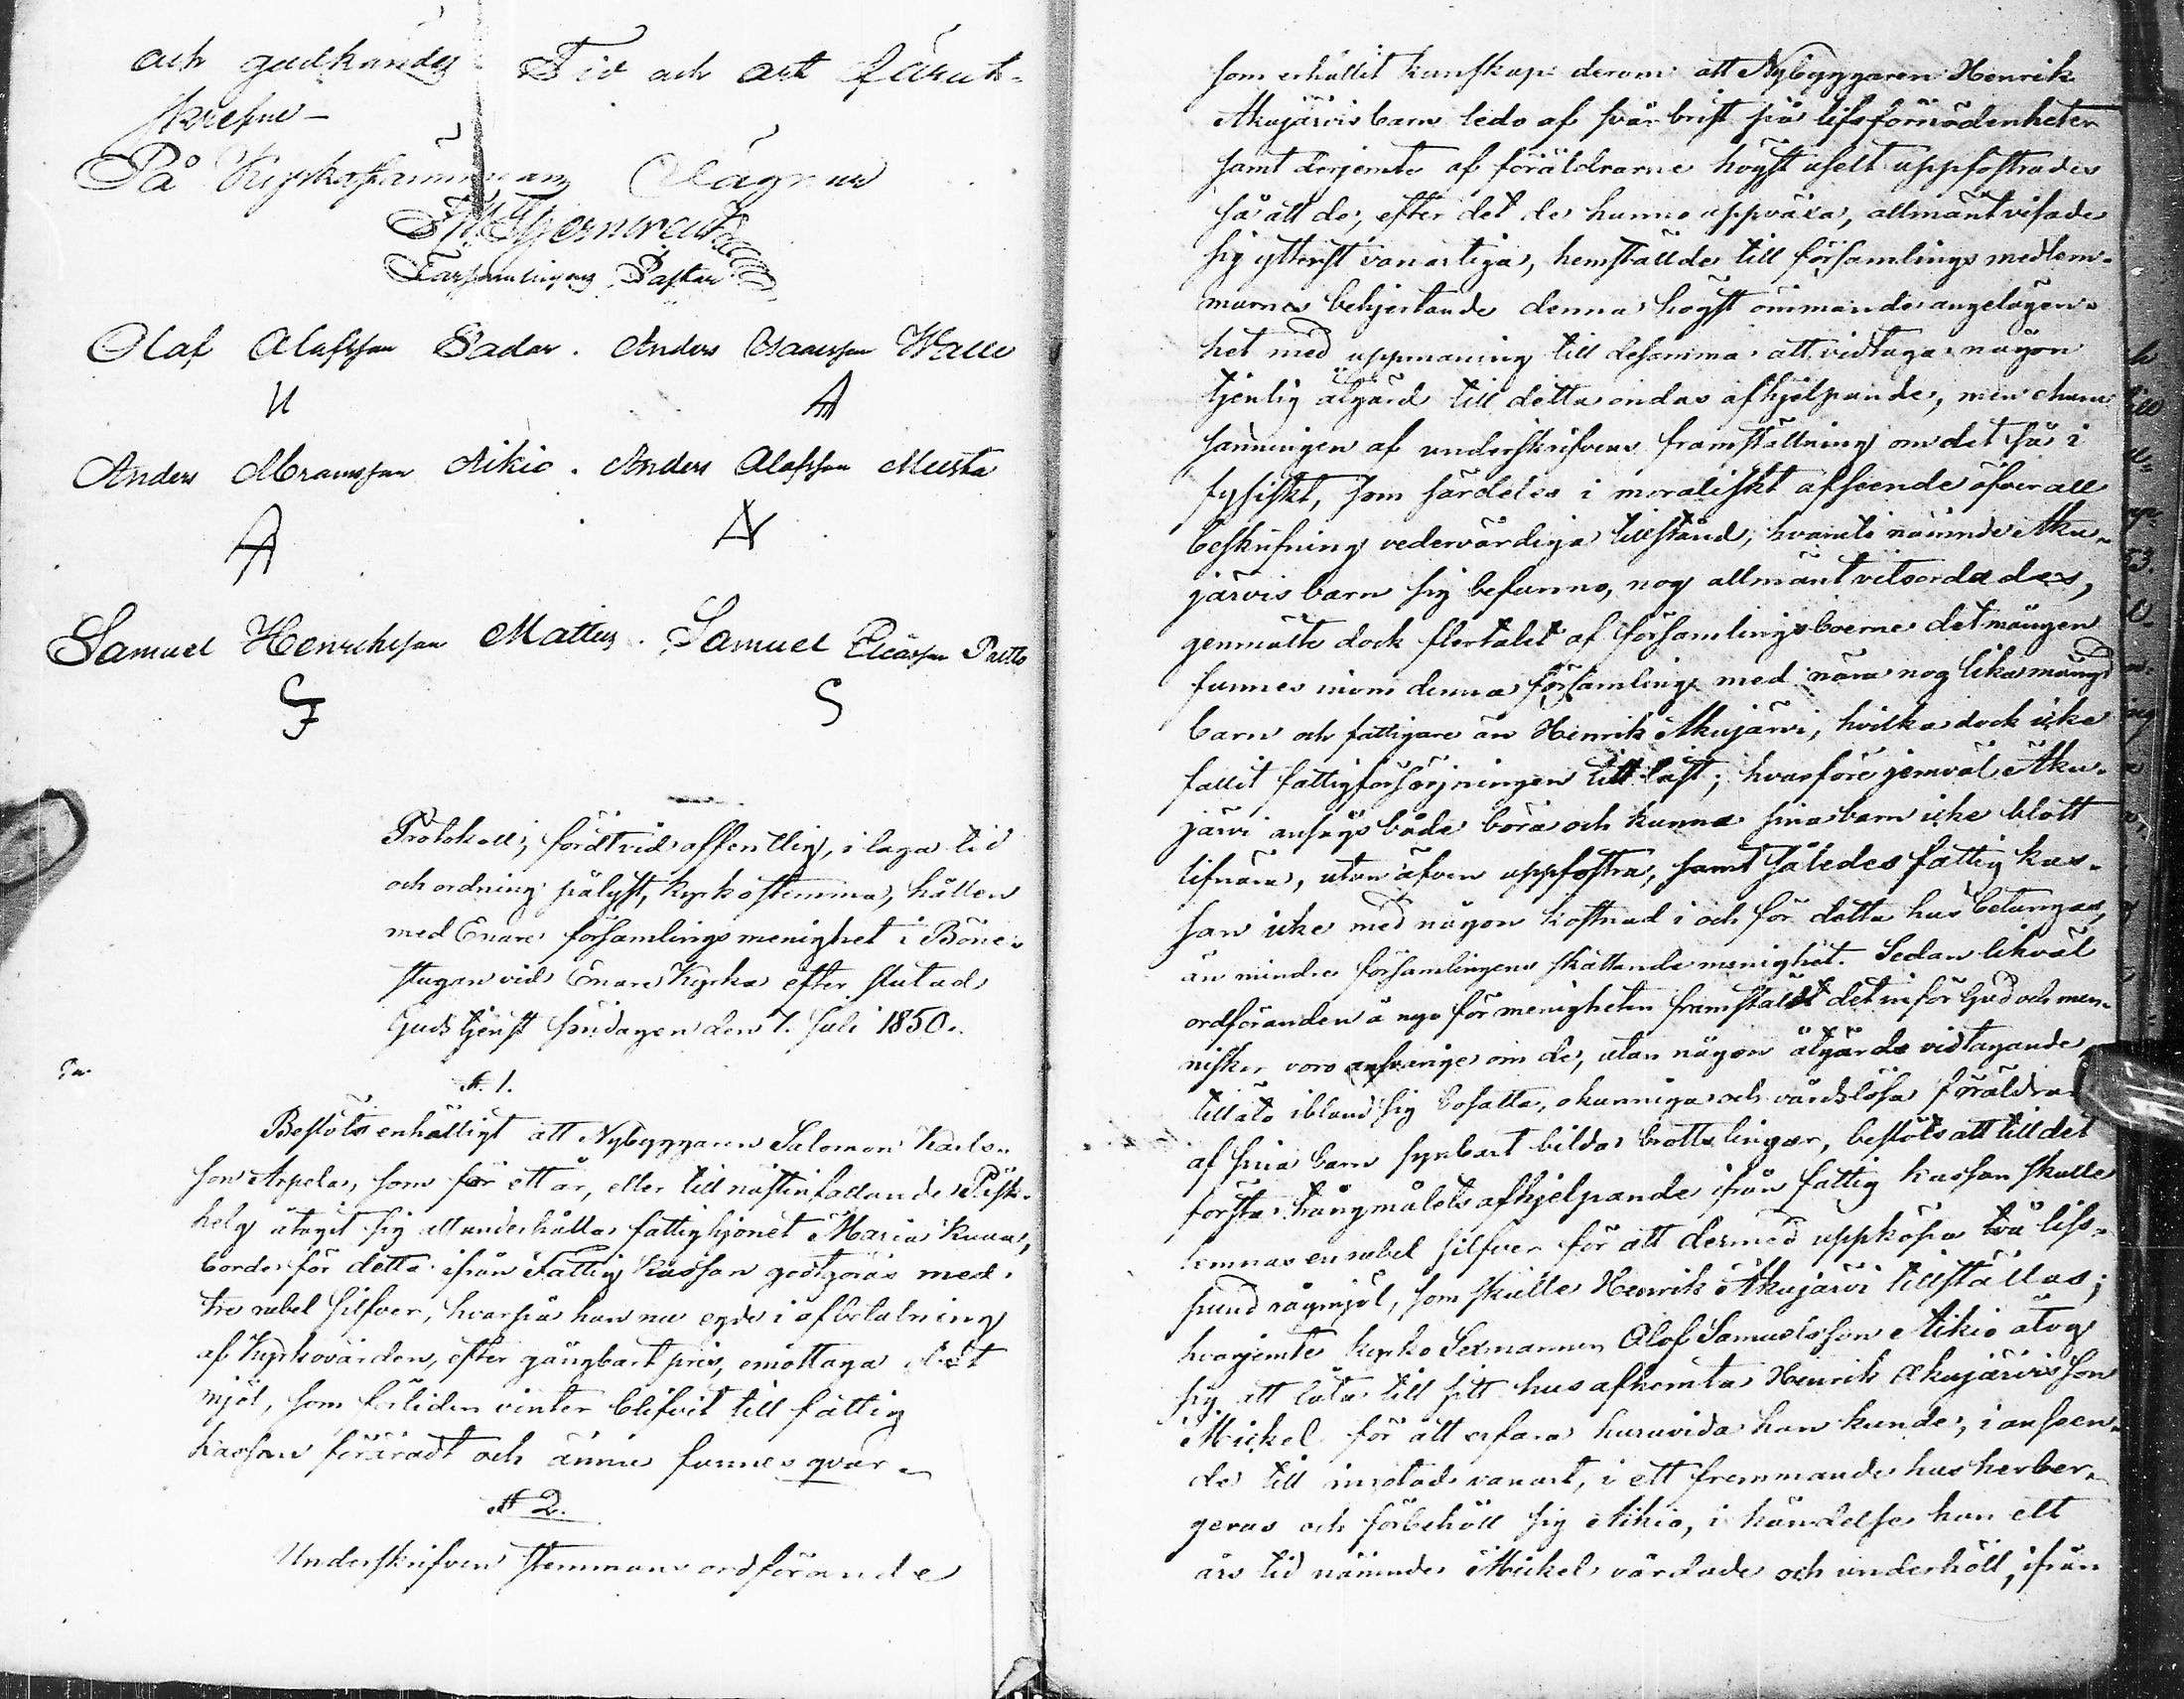 och godkändes Tid och ort förut-
skrefne -
På Kyrkostämmans vägnar
Församlings Pastor
Olaf Olafsson Sadar. Anders Isaacsson Walle
Anders Abramsson Aikio. Anders Olafsson Musta
Samuel Henrichsson Mattus. Samuel Eliasson Paltto
Protokoll, fördt vid offentlig, i laga tid
och ordning pålyst, kyrkostemma, hållen
med Enare församlings menighet i Böne-
stugan vid Enare Kyrka efter slutad
Gudstjenst söndagen den 7. Juli 1850.
§. 1.
Beslöts enhälligt att Nybyggaren Salomon Karls-
son Arpela, som för ett år, eller till nästinfallande Påsk-
helg åtagit sig att underhålla fattighjonet Maria Kuuva,
borde för detta ifrån Fattig kassan godtgöras med
tre rubel silfver, hvarpå han nu egde i afbetalning
af Kyrkovärden, efter gängbart pris, emottaga det
mjöl, som förliden vinter blifvit till fattig
kassan föräradt och ännu funnes qvar.
§ 2.
Underskrifven stemmans ordförande
som erhållit kunskap derom att Nybyggaren Henrik
Akujärvis barn ledo af svår brist på lifsförnödenheter
samt derjemte af föräldrarne högst uselt uppfostrades
så att de, efter det de hunno uppväxa, allmänt visade
sig ytterst vanartiga, hemställde till församlings medlem-
marnes behjertande denna högst ömmande angelägen-
het med uppmaning till desamma att vidtaga någon
tjenlig åtgärd till detta ondas afhjelpande, men ehuru
sanningen af underskrifvens framställning om det så i
fysiskt, som särdeles i moraliskt afseende öfver all
beskrifning vedervärdiga tillstånd, hvaruti nämnde Aku-
järvis barn sig befunno, nog allmänt vitsordades,
genmälte dock flertalet af församlingsboerne det mången
funnes inom denna församling med nära nog lika mängd
barn och fattigare än Henrik Akujärvi, hvilka dock icke
fallit fattigförsörjningen till last; hvarföre jemväl Aku-
järvi ansågs både böra och kunna sina barn icke blott
lifnära, utan äfven uppfostra, samt således fattig kas-
san icke med någon kostnad i och för detta hus betungas,
än mindre församlingens skattande menighet. Sedan likväl
ordföranden å nyo för menigheten framstält det inför Gud och men-
niskor voro ansvarige om de, utan någon åtgärds vidtagande
tilläto ibland sig bosatta, okunniga och vårdslösa föräldrar
af sina barn synbart bilda brottslingar, beslöts att till det
första trångmålets afhjelpande ifrån fattig kassan skulle
lemnas en rubel silfver för att dermed uppköpa två lis-
pund rågmjöl, som skulle Henrik Akujärvi tillställas;
hvarjemte kyrko Sexmannen Olof Samuelsson Aikio åtog
sig att låta till sitt hus afhemta Henrik Akujärvis son
Mickel för att erfara huruvida han kunde, i anseen-
de till inrotad vanart, i ett fremmande hus herber-
geras och förbehöll sig Aikio, i händelse han ett
års tid nämnde Mickel vårdade och underhöll, ifrån